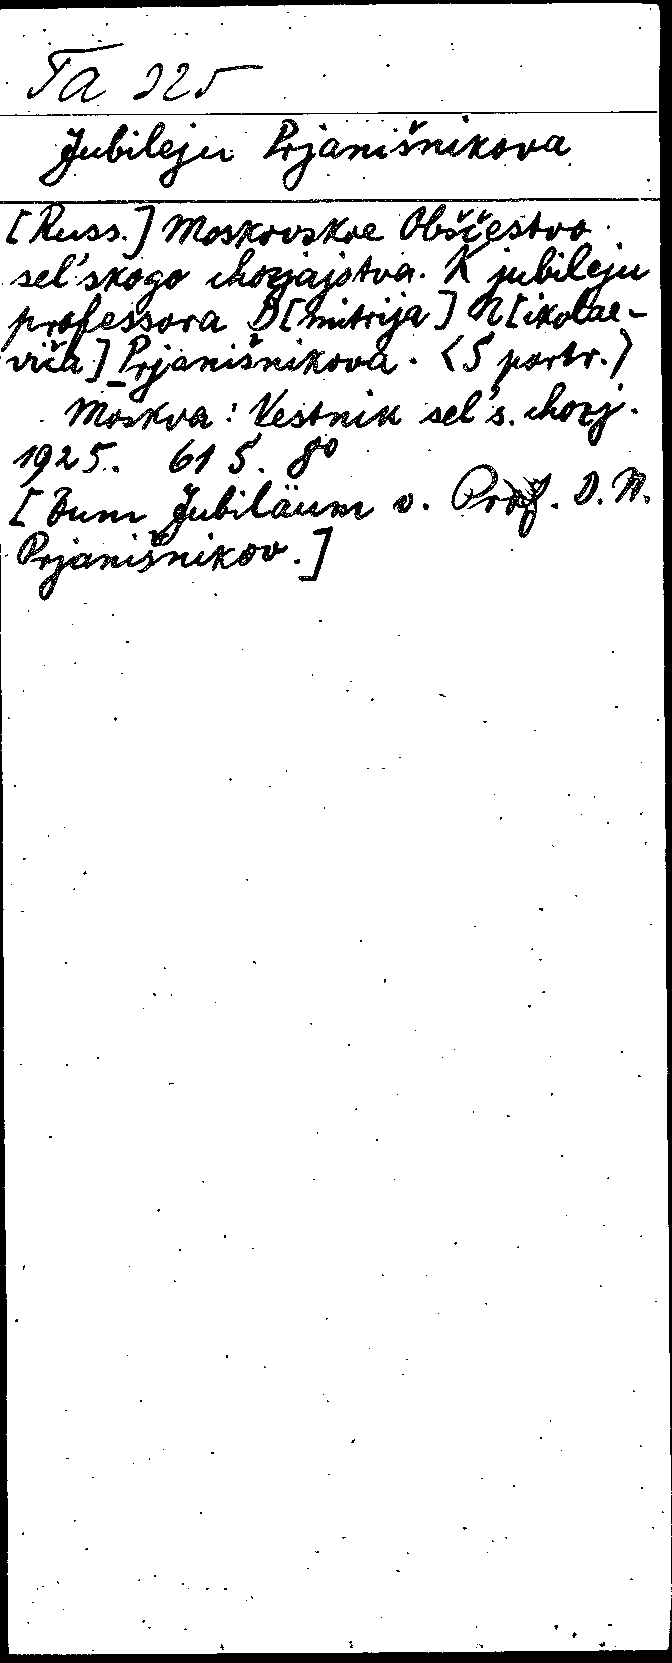 Ta 225
Jubileju Prjanišnikova
[Russ.] Moskovskoe Obščestvo
sel'skogo chozjajstva. K jubileju
professora D[mitrija] N[ikolae-
viča] Prjanišnikova. <5 portr.>
Moskva: Vestnik sel's. chozj.
1925. 61 S. 8°
[Zum Jubiläum v. Prof. D. N.
Prjanišnikov.]